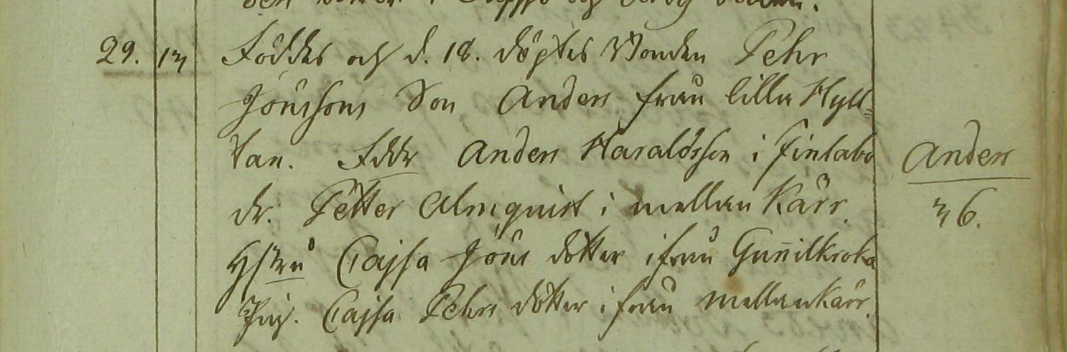 29. 17 Föddes och d. 18. döptes Bonden Pehr
Jönssons Son Anders från lilla Hyll-
tan. Fddr Anders Haraldsson i Finlabo
dr. Petter Almquist i mellan Kärr.
Hstru Cajsa Jöns dotter ifrån Gunnilkroka
Pig. Cajsa Pehrs dotter ifrån mellankärr.
Anders
36.